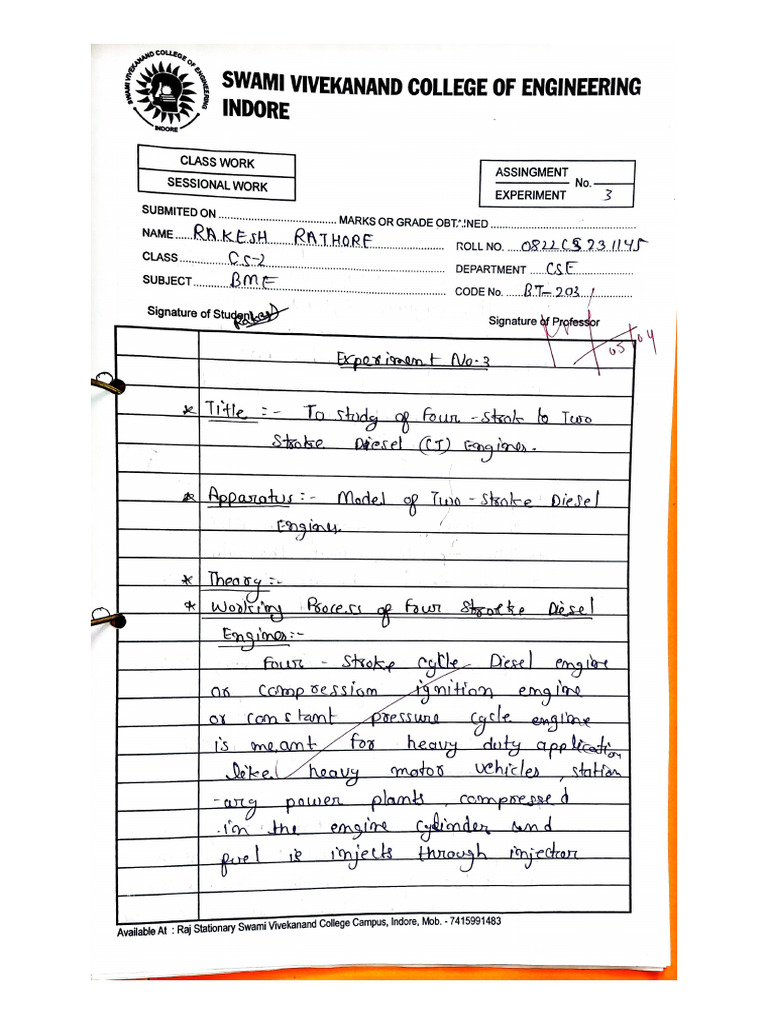 SWAMI VIVEKANAND COLLEGE OF ENGINEERING
INDORE
SWAMI VIVEKANAND COLLEGE OF ENGINEERING
INDORE
CLASS WORK
SESSIONAL WORK
ASSINGMENT
No.
EXPERIMENT 3
SUBMITED ON ........ MARKS OR GRADE OBTAINED ........
NAME ..... RAKESH RATHORE
ROLL NO. ..0822CS231145
CLASS ..... CS-2
DEPARTMENT ..... CSE
SUBJECT ..... BME
CODE No. ..... BT-203
Signature of Student
Rakesh
Signature of Professor
05/04
Experiment No-3
* Title :- To study of four-strok to Two
Stroke Diesel (CI) Engines.
* Apparatus :- Model of Two-Stroke Diesel
Engines
* Theory :-
* Working Process of four Stroke Diesel
Engines:-
Four - Stroke cycle Diesel engine
or compression ignition engine
or constant pressure cycle engine
is meant for heavy duty application
like heavy motor vehicles, station
-arg power plants, compressed
in the engine cylinder and
fuel is injects through injector
Available At : Raj Stationary Swami Vivekanand College Campus, Indore, Mob. - 7415991483